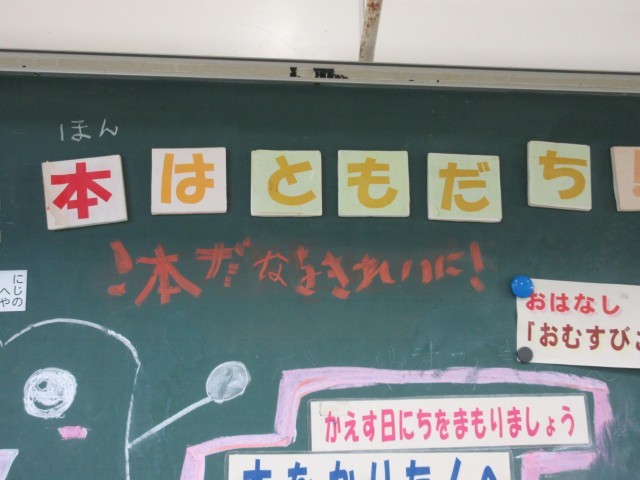 ほん
本はともだち!
!本だなきれいに!
にじの
へや
おはなし
「おむすびこ
かえす日にちをまもりましょう